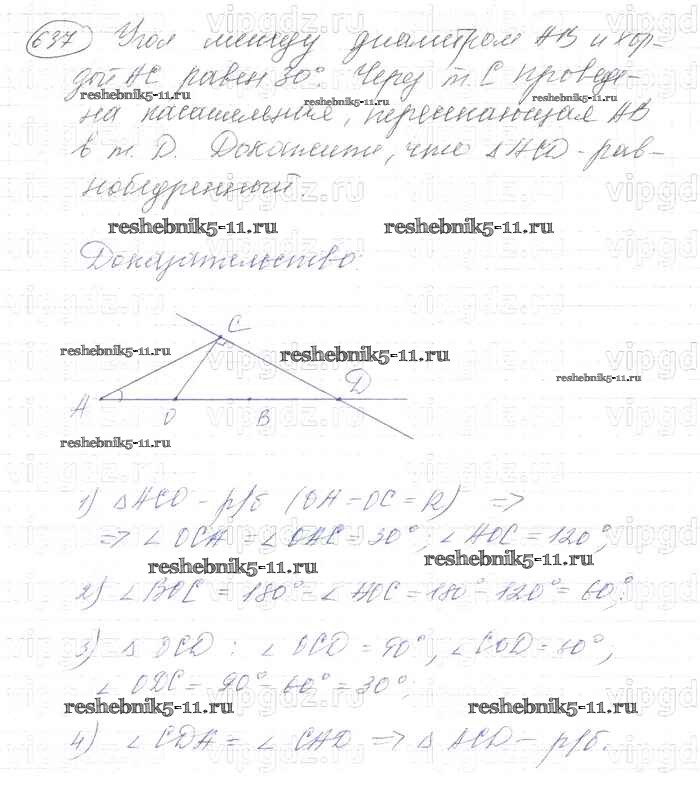 637 Угол между диаметром AB и хор-
дой AC равен 30°. Через т. C проведе-
на касательная, пересекающая AB
в т. D. Докажите, что △ACD - рав-
нобедренный.
reshebnik5-11.ru reshebnik5-11.ru reshebnik5-11.ru
reshebnik5-11.ru reshebnik5-11.ru
Доказательство:
C
reshebnik5-11.ru reshebnik5-11.ru
D reshebnik5-11.ru
A O B
reshebnik5-11.ru
1) △ACO - р/б (OA=OC=R) =>
=> ∠OCA = ∠OAC = 30°; ∠AOC = 120°;
reshebnik5-11.ru reshebnik5-11.ru
2) ∠BOC = 180° - ∠AOC = 180° - 120° = 60°;
3) △OCD : ∠OCD = 90°, ∠COD = 60°,
∠ODC = 90° - 60° = 30°;
reshebnik5-11.ru reshebnik5-11.ru
4) ∠CDA = ∠CAD => △ACD - р/б.
vipgdz.ru